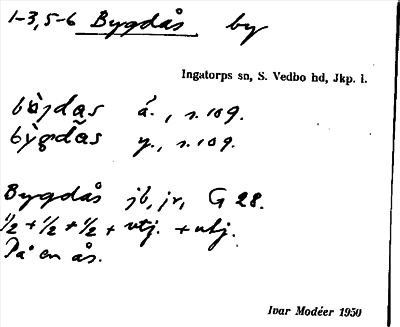 1-3,5-6 Bygdås by
Ingatorps sn, S. Vedbo hd, Jkp. l.
å., s. 109.
bỳgdås y., s. 109.
Bygdås jb, jr, G 28.
1/2 + 1/2 + 1/2 + utj. + utj.
På en ås.
Ivar Modéer 1950